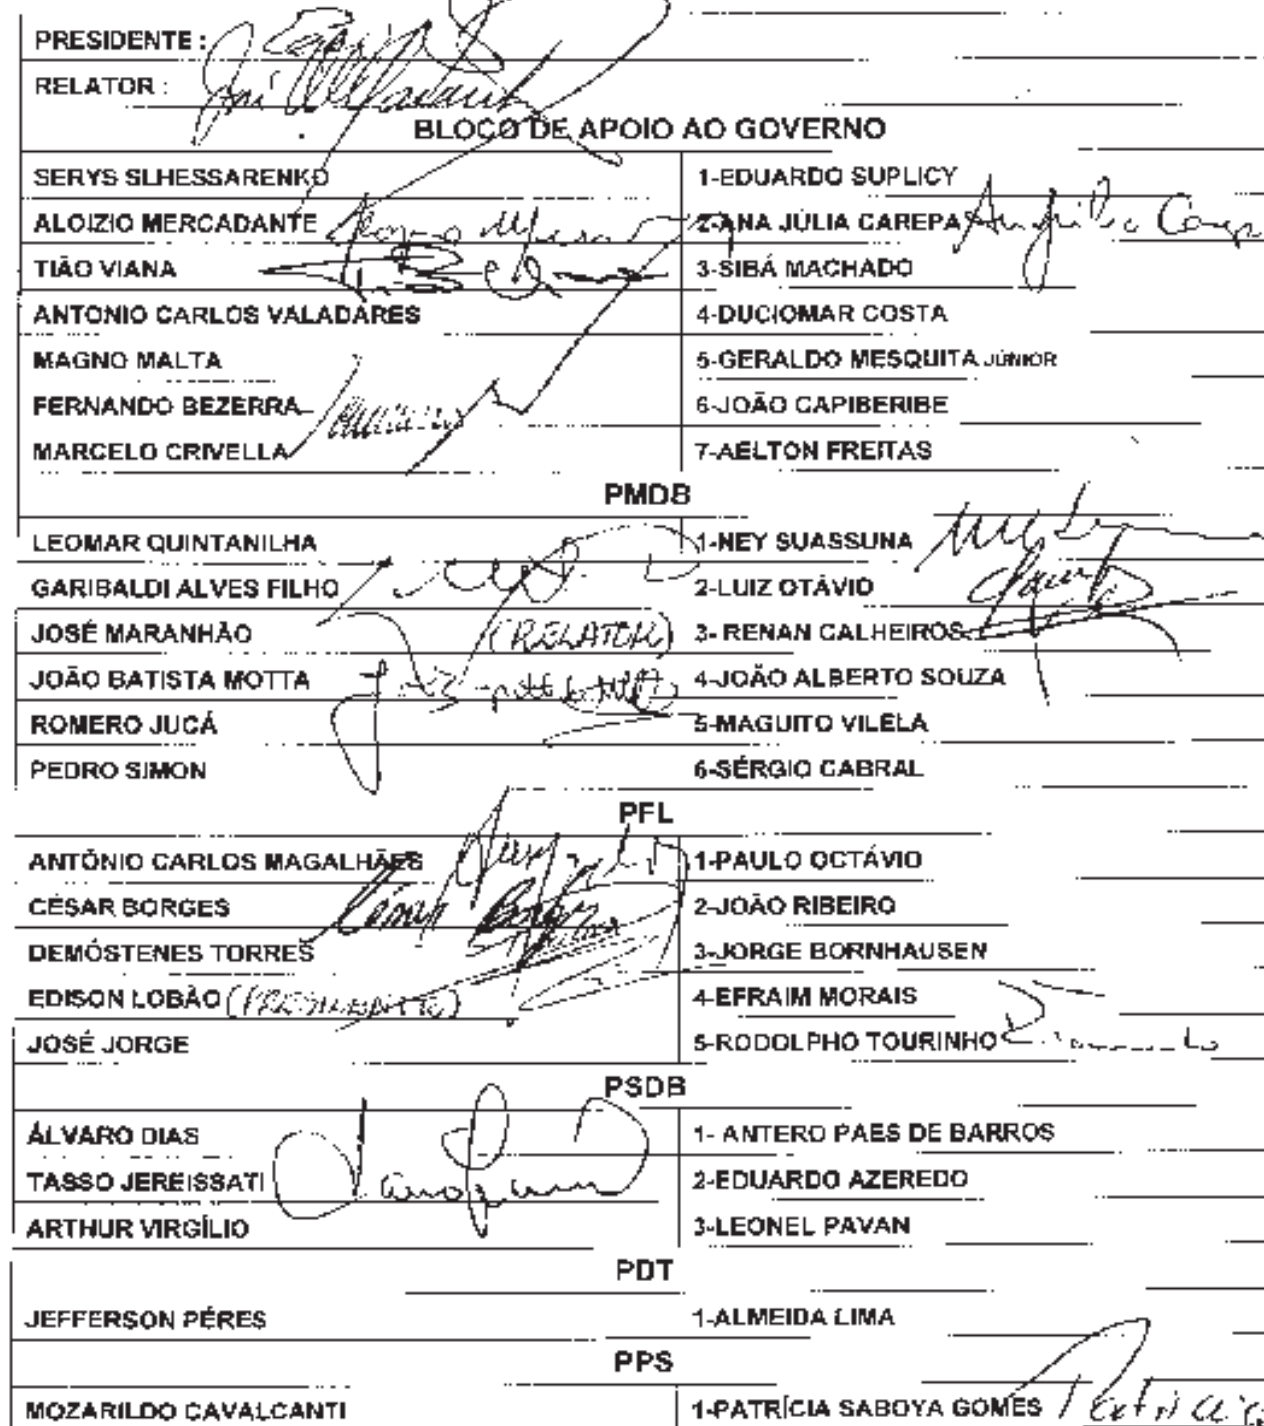 PRESIDENTE :
RELATOR :
BLOCO DE APOIO AO GOVERNO
SERYS SLHESSARENKO 1-EDUARDO SUPLICY
ALOIZIO MERCADANTE 2-ANA JÚLIA CAREPA
TIÃO VIANA 3-SIBÁ MACHADO
ANTONIO CARLOS VALADARES 4-DUCIOMAR COSTA
MAGNO MALTA 5-GERALDO MESQUITA JÚNIOR
FERNANDO BEZERRA 6-JOÃO CAPIBERIBE
MARCELO CRIVELLA 7-AELTON FREITAS
PMDB
LEOMAR QUINTANILHA 1-NEY SUASSUNA
GARIBALDI ALVES FILHO 2-LUIZ OTÁVIO
JOSÉ MARANHÃO (RELATOR) 3- RENAN CALHEIROS
JOÃO BATISTA MOTTA 4-JOÃO ALBERTO SOUZA
ROMERO JUCÁ 5-MAGUITO VILELA
PEDRO SIMON 6-SÉRGIO CABRAL
PFL
ANTÔNIO CARLOS MAGALHÃES 1-PAULO OCTÁVIO
CÉSAR BORGES 2-JOÃO RIBEIRO
DEMÓSTENES TORRES 3-JORGE BORNHAUSEN
EDISON LOBÃO (PRESIDENTE) 4-EFRAIM MORAIS
JOSÉ JORGE 5-RODOLPHO TOURINHO
PSDB
ÁLVARO DIAS 1- ANTERO PAES DE BARROS
TASSO JEREISSATI 2-EDUARDO AZEREDO
ARTHUR VIRGÍLIO 3-LEONEL PAVAN
PDT
JEFFERSON PÉRES 1-ALMEIDA LIMA
PPS
MOZARILDO CAVALCANTI 1-PATRÍCIA SABOYA GOMES Patrícia